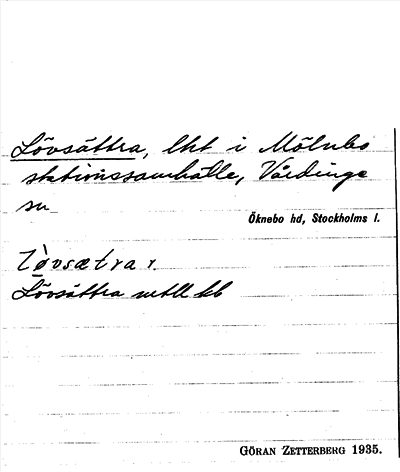 Lövsättra, lht i Mölnbo
stationssamhälle, Vårdinge
sn
Öknebo hd, Stockholms l.
Lövsættra r.
Lövsättra mtll kb
GÖRAN ZETTERBERG 1935.